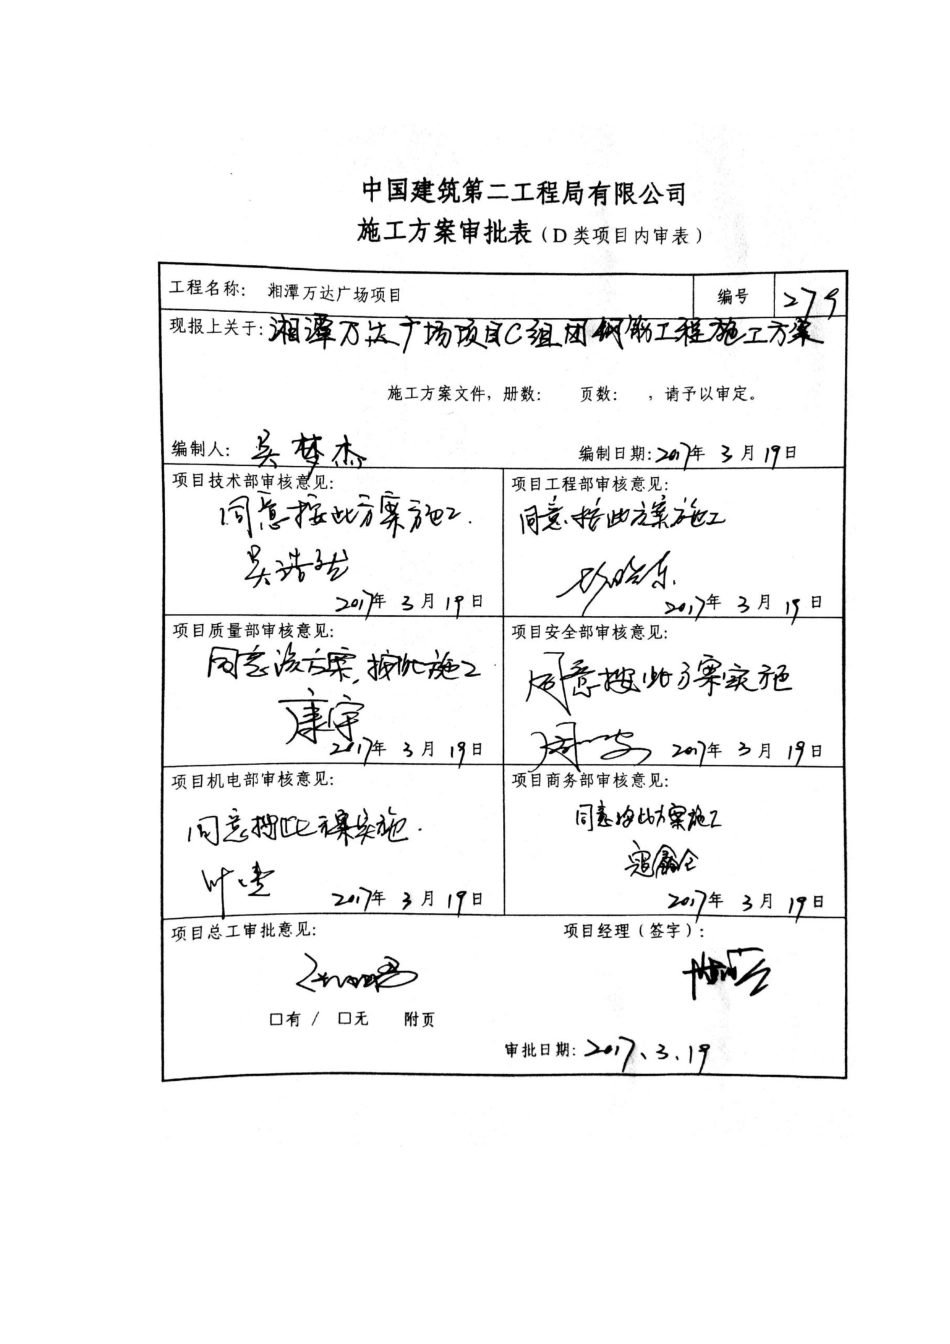 中国建筑第二工程局有限公司
施工方案审批表（D类项目内审表）
工程名称： 湘潭万达广场项目 编号 279
现报上关于：湘潭万达广场项目C组团钢筋工程施工方案
施工方案文件，册数： 页数： ，请予以审定。
编制人： 吴梦杰 编制日期：2017年 3 月 19日
项目技术部审核意见：
同意按此方案施工.
吴浩
2017年 3 月 19日
项目工程部审核意见：
同意按此方案施工
2017年 3 月 19日
项目质量部审核意见：
同意该方案，按此施工
康宇
2017年 3 月 19日
项目安全部审核意见：
同意按此方案实施
周
2017年 3 月 19日
项目机电部审核意见：
同意按此方案实施.
叶
2017年 3 月 19日
项目商务部审核意见：
同意按此方案施工
2017年 3 月 19日
项目总工审批意见：
项目经理（签字）：
□有 / □无 附页
审批日期：2017、3、19